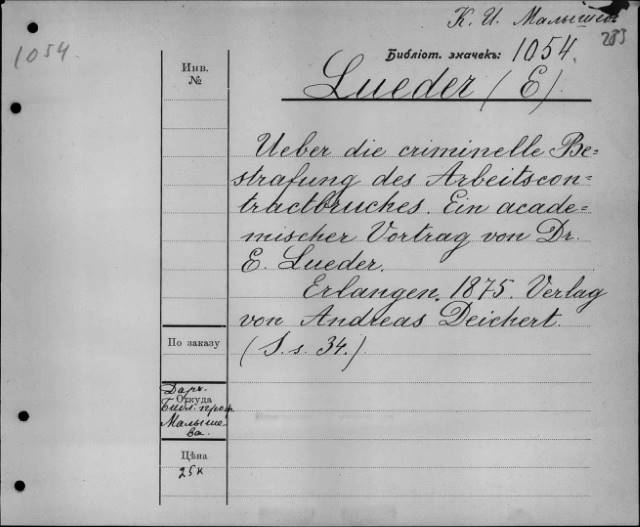 К. И. Малышев
283
1054
Библіот. значекъ: 1054.
Инв.
№
Lueder (E)
Ueber die criminelle Be=
strafung des Arbeitscon=
tractbruches. Ein acade=
mischer Vortrag von Dr.
E. Lueder.
Erlangen. 1875. Verlag
von Andreas Deichert.
(S. s. 34.)
По заказу
Откуда
Библ. проф.
Малыше
ва.
Цѣна
25к